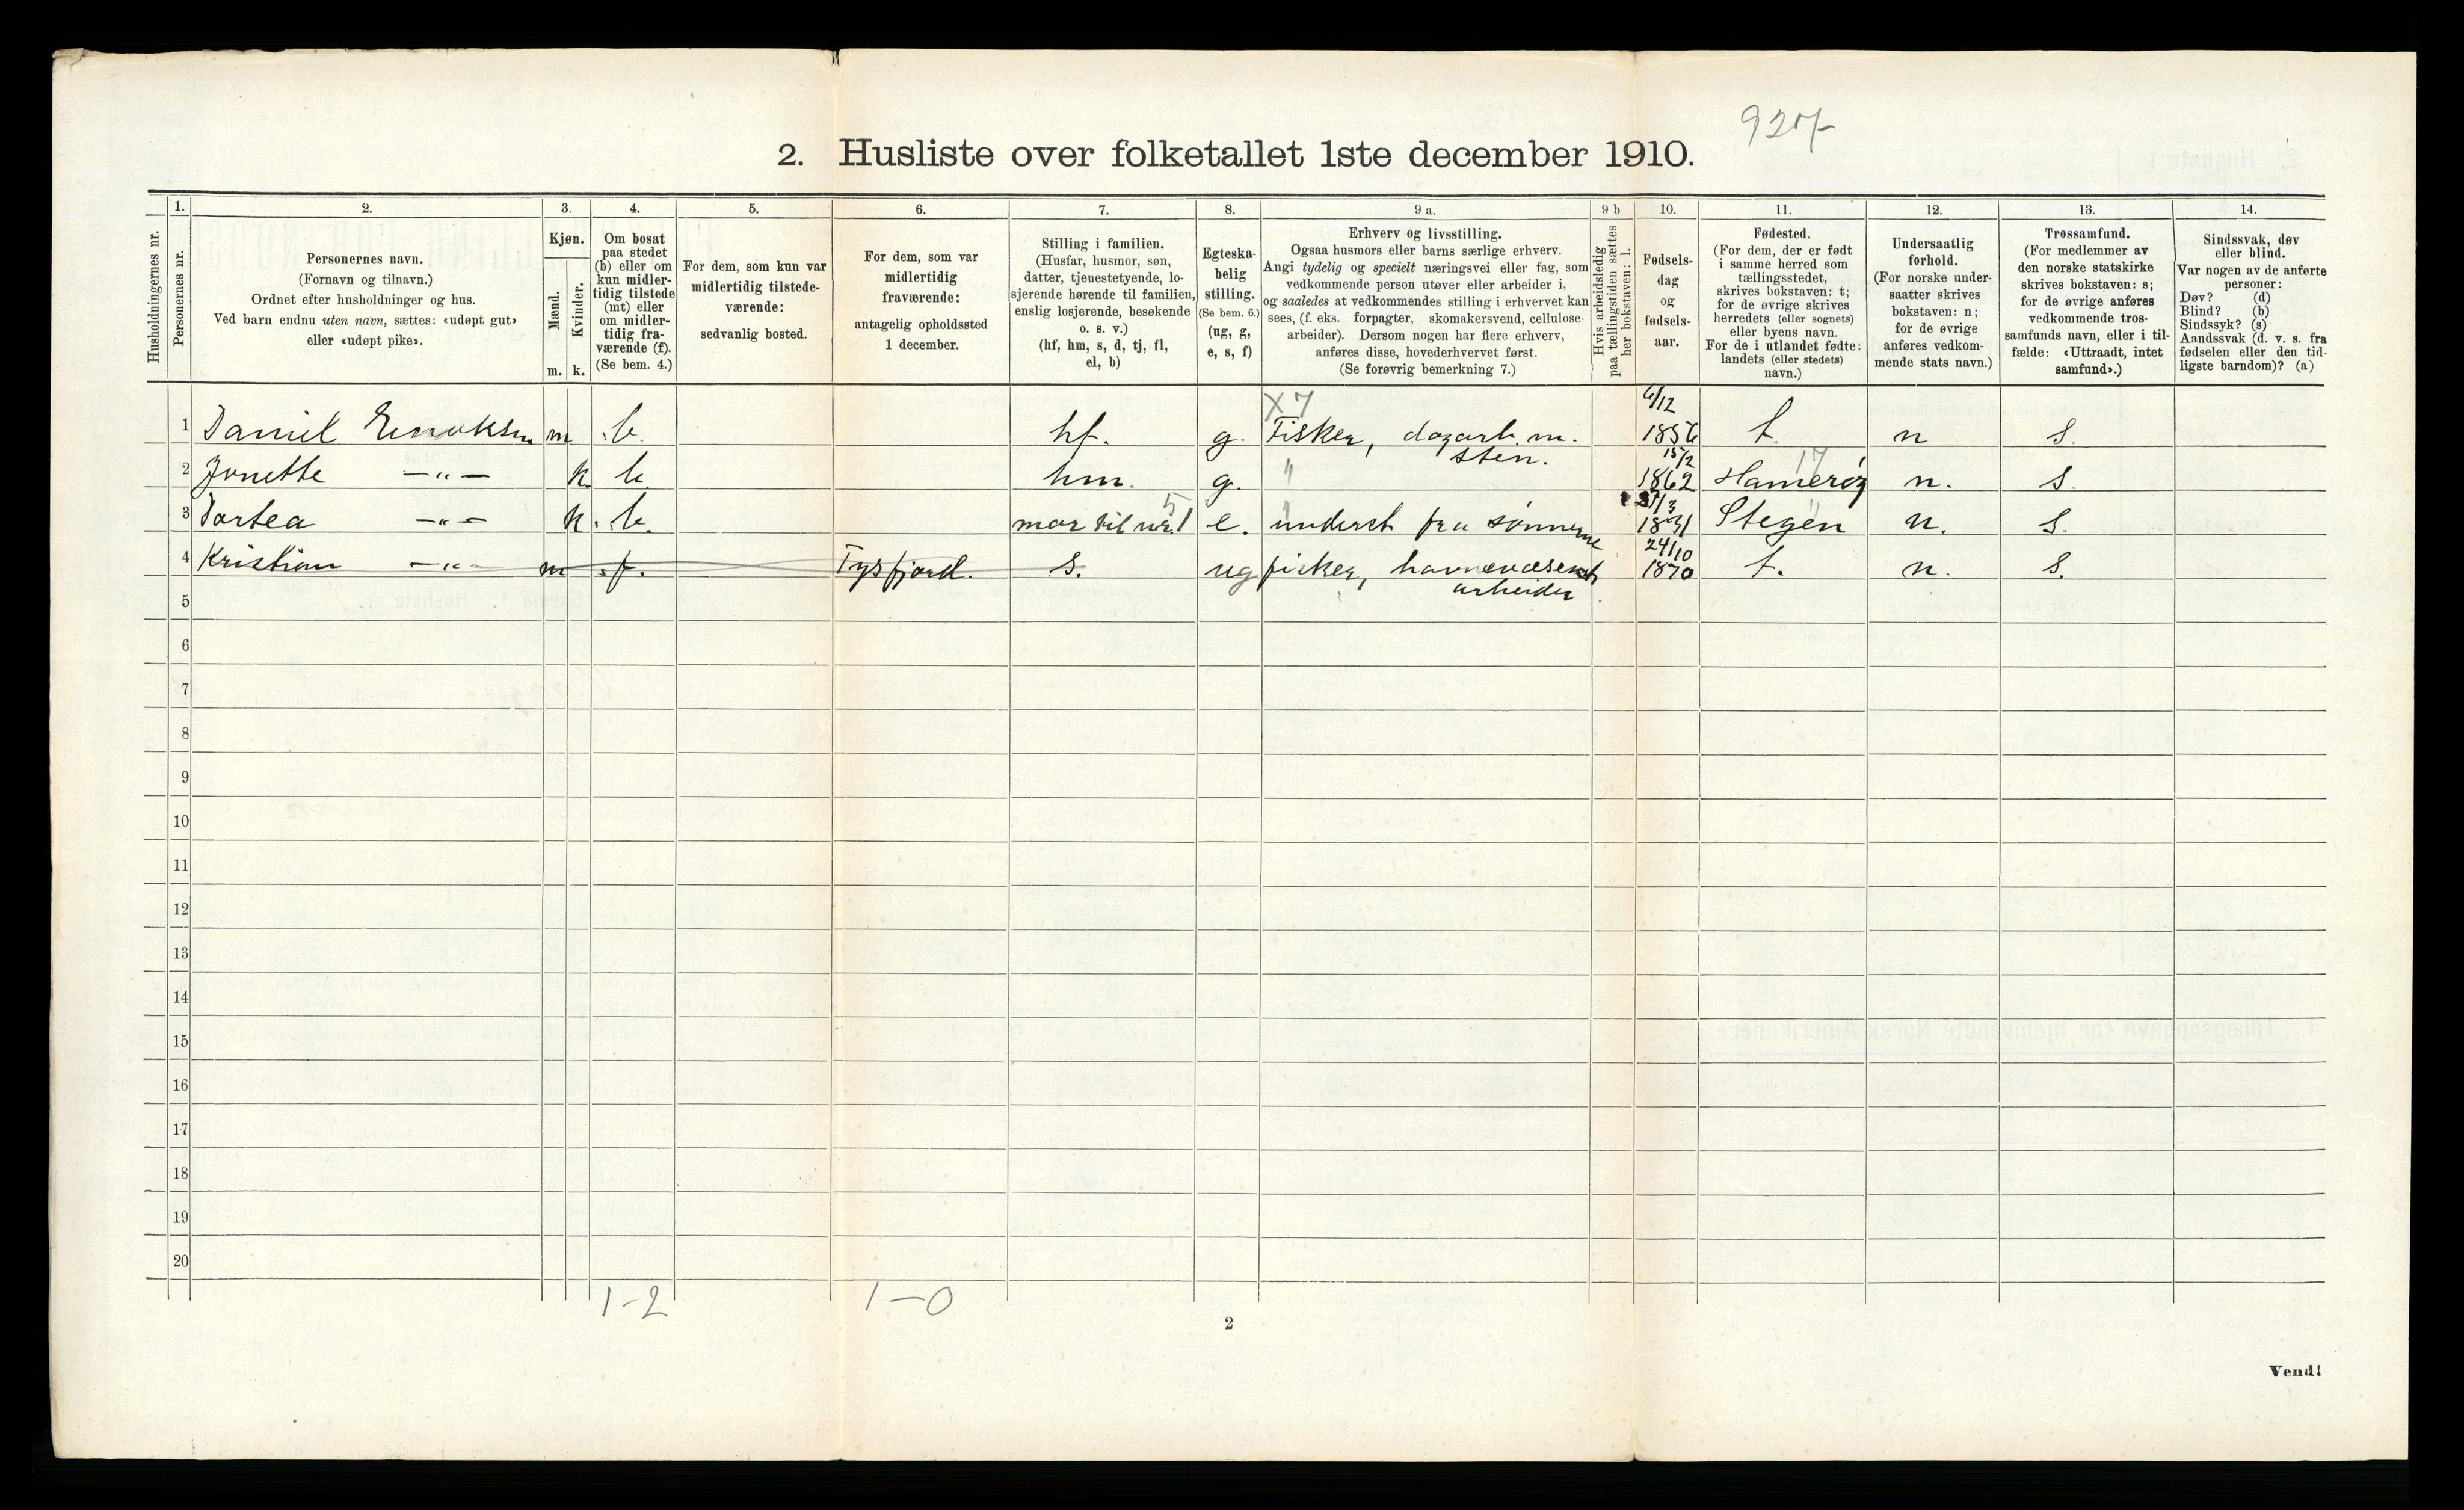 927
2. Husliste over folketallet 1ste december 1910.
Husholdningernes nr.
1.
Personernes nr.
2.
Personernes navn.
(Fornavn og tilnavn.)
Ordnet efter husholdninger og hus.
Ved barn endnu uten navn, sættes: «udøpt gut»
eller «udøpt pike».
3.
Kjøn.
Mænd.
Kvinder.
m. k.
4.
Om bosat
paa stedet
(b) eller om
kun midler-
tidig tilstede
(mt) eller
om midler-
tidig fra-
værende (f).
(Se bem. 4.)
5.
For dem, som kun var
midlertidig tilstede-
værende:
sedvanlig bosted.
6.
For dem, som var
midlertidig
fraværende:
antagelig opholdssted
1 december.
7.
Stilling i familien.
(Husfar, husmor, søn,
datter, tjenestetyende, lo-
sjerende hørende til familien,
enslig losjerende, besøkende
o. s. v.)
(hf, hm, s, d, tj, fl,
el, b)
8.
Egteska-
belig
stilling.
(Se bem. 6.)
(ug, g,
e, s, f)
9 a.
Erhverv og livsstilling.
Ogsaa husmors eller barns særlige erhverv.
Angi tydelig og specielt næringsvei eller fag, som
vedkommende person utøver eller arbeider i,
og saaledes at vedkommendes stilling i erhvervet kan
sees, (f. eks. forpagter, skomakersvend, cellulose-
arbeider). Dersom nogen har flere erhverv,
anføres disse, hovederhvervet først.
(Se forøvrig bemerkning 7.)
9 b
Hvis arbeidsledig
paa tællingstiden sættes
her bokstaven: l.
10.
Fødsels-
dag
og
fødsels-
aar.
11.
Fødested.
(For dem, der er født
i samme herred som
tællingsstedet,
skrives bokstaven: t;
for de øvrige skrives
herredets (eller sognets)
eller byens navn.
For de i utlandet fødte:
landets (eller stedets)
navn.)
12.
Undersaatlig
forhold.
(For norske under-
saatter skrives
bokstaven: n;
for de øvrige
anføres vedkom-
mende stats navn.)
13.
Trossamfund.
(For medlemmer av
den norske statskirke
skrives bokstaven: s;
for de øvrige anføres
vedkommende tros-
samfunds navn, eller i til-
fælde: «Uttraadt, intet
samfund».)
14.
Sindssvak, døv
eller blind.
Var nogen av de anførte
personer:
Døv? (d)
Blind? (b)
Sindssyk? (s)
Aandssvak (d. v. s. fra
fødselen eller den tid-
ligste barndom)? (a)
X7 6/12
1 Daniel Enoksen m b. hf. g. Fisker, dagarb. m. sten. 1856 t. n s.
15/2 17
2 Jonette —"— k. b. hm. g. " 1862 Hamerøy n. s.
5 27/3
3 Dortea —"— k. b. mor til nr. 1 e. underst fra sønnerne 1831 Stegen n. s.
24/10
4 Kristian —"— m f. Tysfjord. s. ug fisker, havnevæsenets arbeider 1870 t. n. s.
5
6
7
8
9
10
11
12
13
14
15
16
17
18
19
20
1-2 1-0
2
Vend!